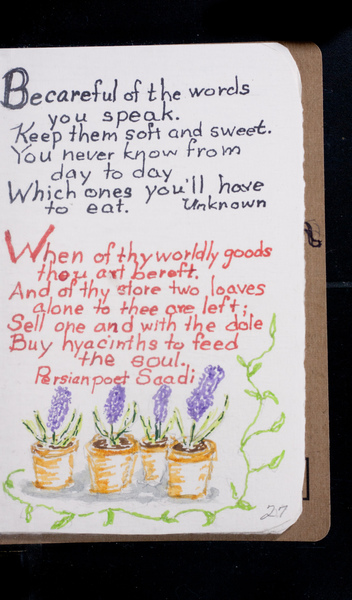 Becareful of the words
you speak.
Keep them soft and sweet.
You never know from
day to day
Which ones you'll have
to eat. Unknown
When of thy worldly goods
thou art bereft.
And of thy store two loaves
alone to thee are left;
Sell one and with the dole
Buy hyacinths to feed
the soul.
Persian poet Saadi
27